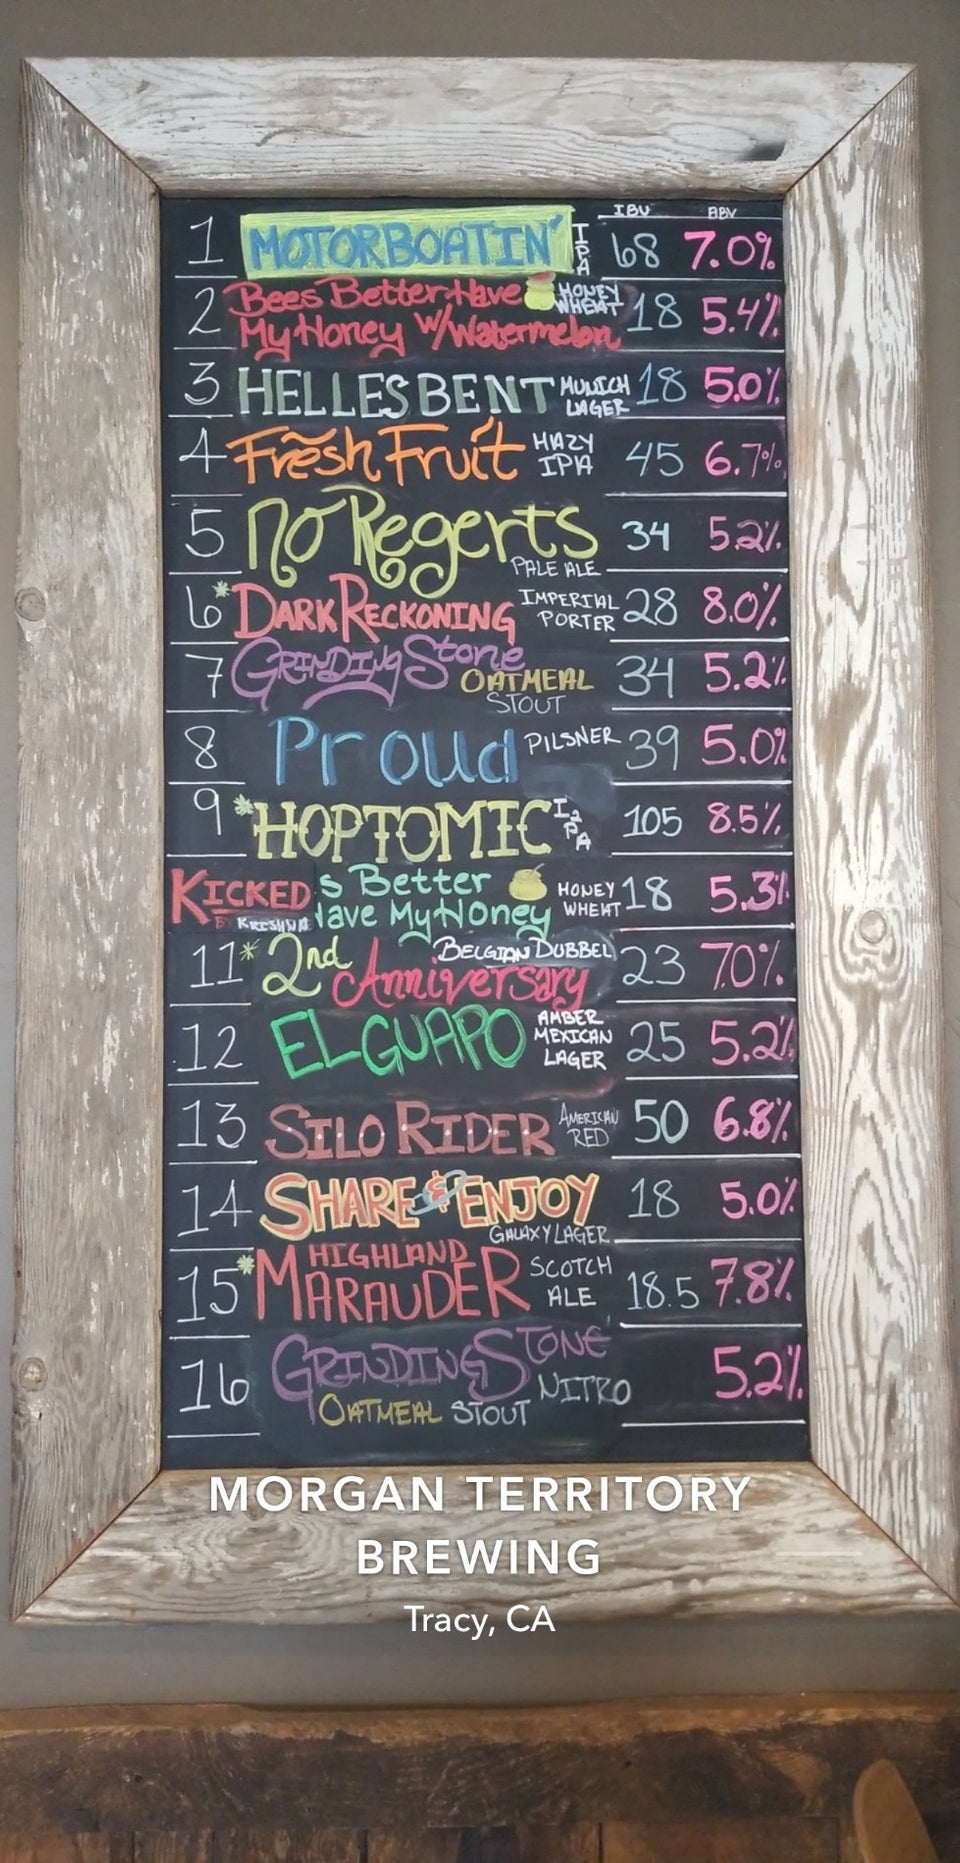 IBU ABV
1 MOTORBOATIN' IPA 68 7.0%
2 Bees Better Have HONEY WHEAT 18 5.4%
My Honey W/Watermelon
3 HELLES BENT MUNICH LAGER 18 5.0%
4 Fresh Fruit HAZY IPA 45 6.7%
5 No Regerts 34 5.2%
PALE ALE
6 *DARK RECKONING IMPERIAL PORTER 28 8.0%
7 GRINDING Stone 34 5.2%
OATMEAL
STOUT
8 Proud PILSNER 39 5.0%
9 *HOPTOMIC I2PA 105 8.5%
KICKED s Better HONEY WHEAT 18 5.3%
KRISHNA Have My Honey
11 * 2nd BELGIAN DUBBEL 23 7.0%
Anniversary
12 EL GUAPO AMBER MEXICAN LAGER 25 5.2%
13 SILO RIDER AMERICAN RED 50 6.8%
14 SHARE & ENJOY 18 5.0%
GALAXY LAGER
15 * HIGHLAND SCOTCH ALE 18.5 7.8%
MARAUDER
16 GRINDING STONE 5.2%
NITRO
OATMEAL STOUT
MORGAN TERRITORY
BREWING
Tracy, CA